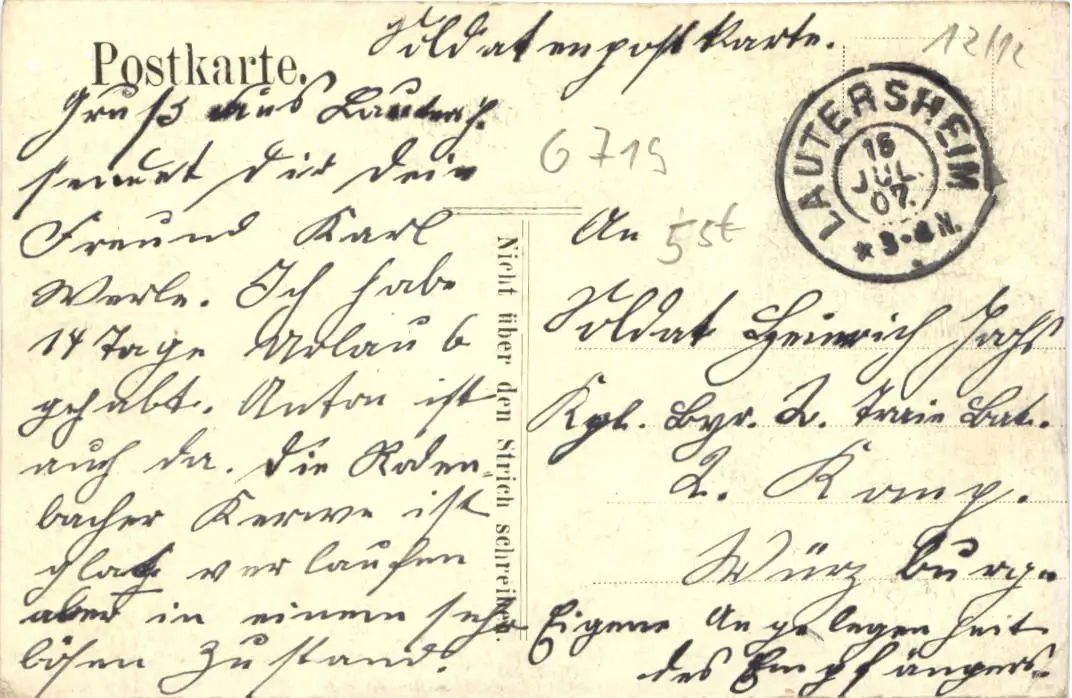 Soldatenpostkarte.
12/12
Postkarte.
Gruß aus Lautersh.
sendet dir dein
Freund Karl
Werle. Ich habe
14 Tage Urlaub
gehabt. Anton ist
auch da. Die Roden
bacher Kerwe ist
glatt verlaufen
aber in einem sehr
bösen Zustand.
Nicht über den Strich schreiben.
6719
LAUTERSHEIM
15
JUL.
07.
An
Soldat Heinrich
Kgl. Byr. 2. Train Bat.
2. Komp.
Würzburg.
Eigene Angelegenheit
des Empfängers.